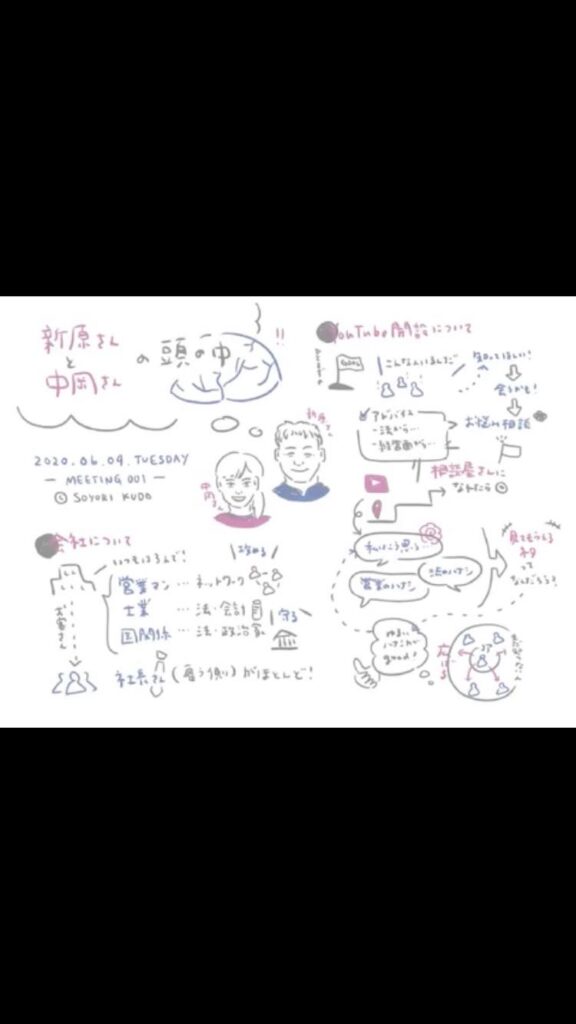 新原さん
と
中岡さん
の頭の中
!!
2020.06.09.TUESDAY
— MEETING 001 —
© SOYORI KUDO
新原さん
中岡さん
会社について
いつもはろんで!
お客さん
攻める
営業マン … ネットワーク
士業 … 法・会計
守る
国関係 … 法・政治家
社長さん (雇う側) がほとんど!
YouTube開設について
こんな人いるんだ
知ってほしい!
会うかも!
お悩み相談
アドバイス
- 法から…
- 経営面から…
相談屋さんに
なれたら
私はこう思う…
法のハナシ
営業のハナシ
見てもらえる
ネタ
って
なんだろう?